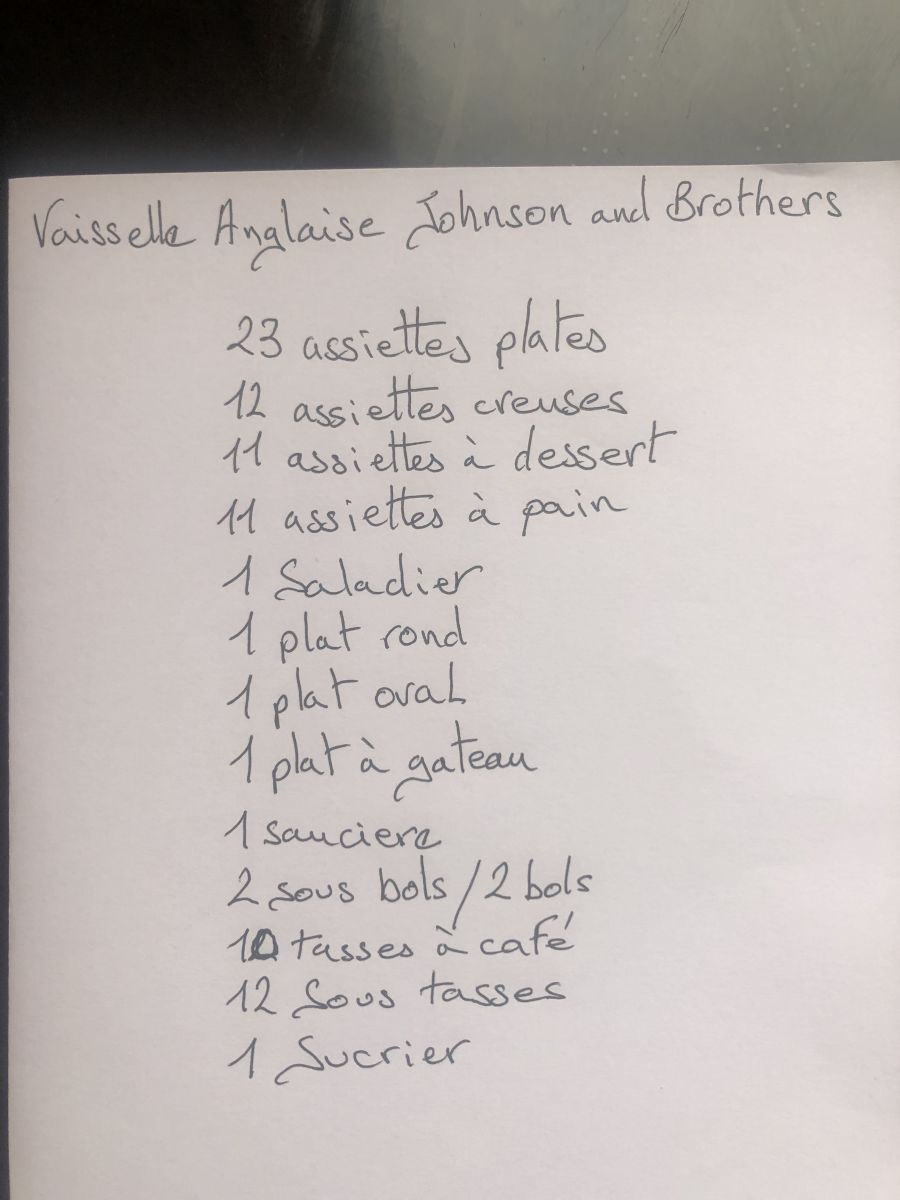 Vaisselle Anglaise Johnson and Brothers
23 assiettes plates
12 assiettes creuses
11 assiettes à dessert
11 assiettes à pain
1 Saladier
1 plat rond
1 plat oval
1 plat à gateau
1 sauciere
2 sous bols / 2 bols
10 tasses à café
12 Sous tasses
1 Sucrier